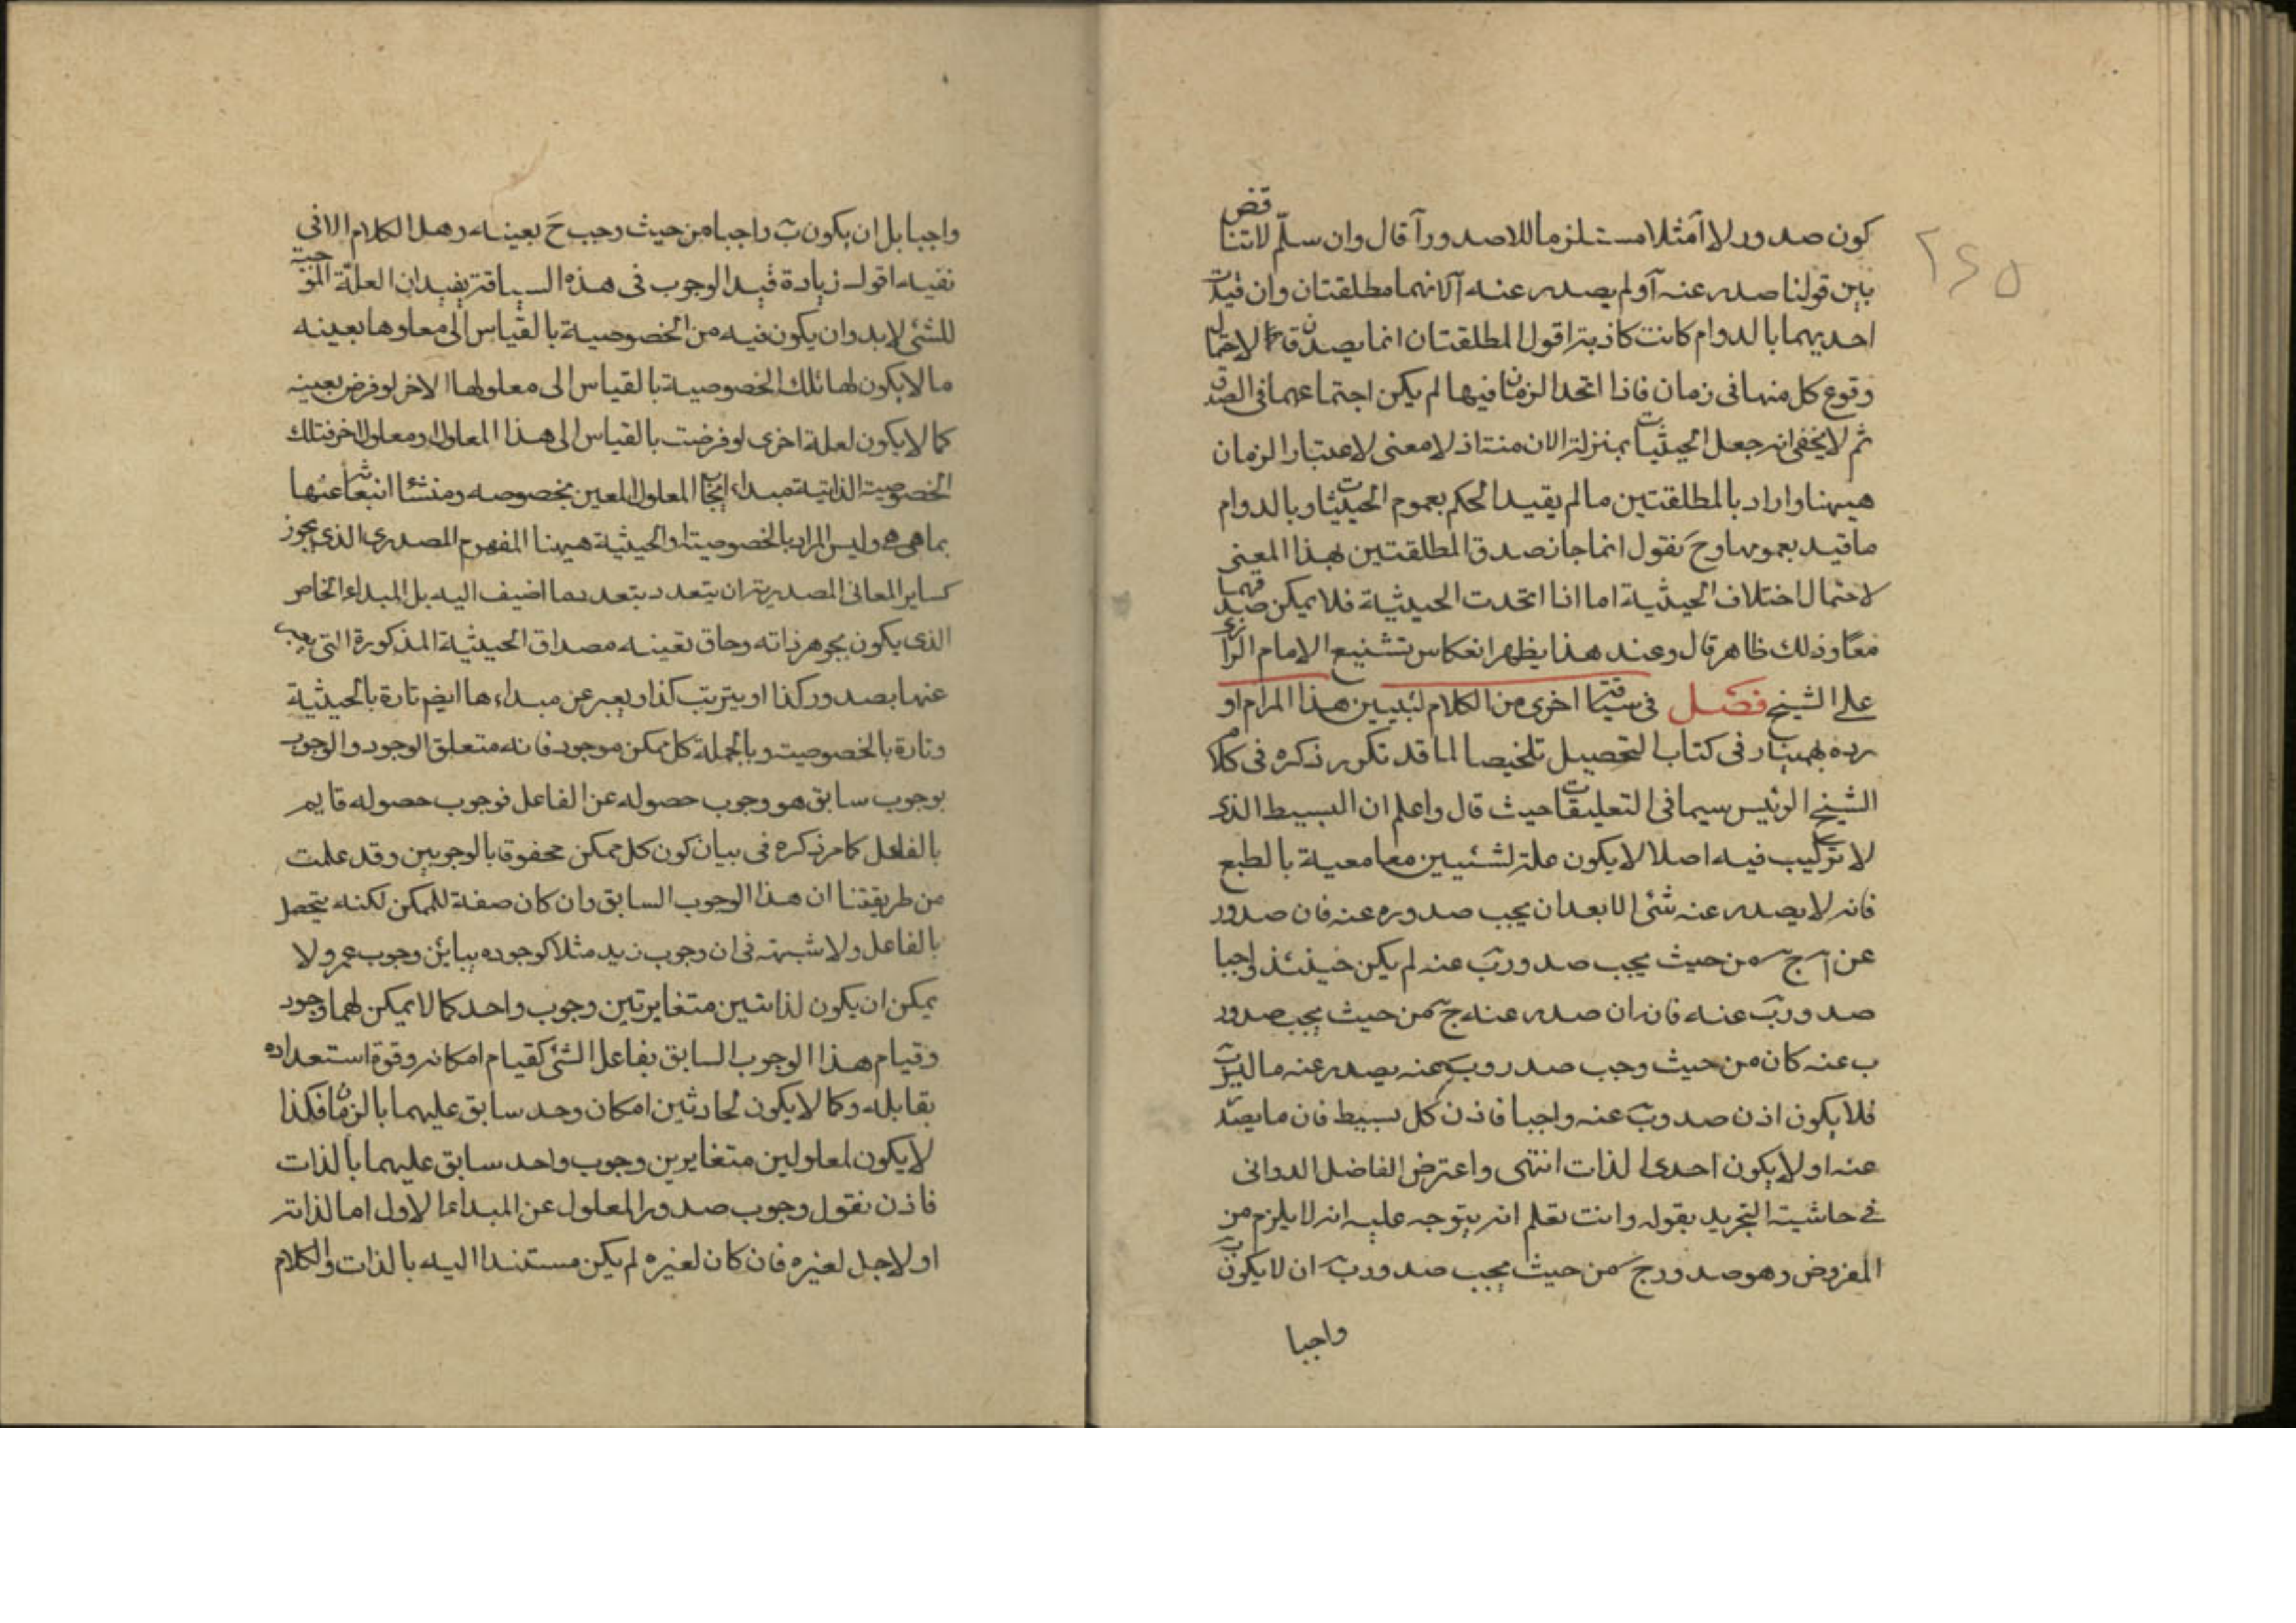 ٢٤٥
كون صدور لا آ مثلا مستلزما للاصدور آ قال وان سلّم لا تناقض
بين قولنا صدر عنه آ ولم يصدر عنه آ لانهما مطلقتان وان قيدت
احديهما بالدوام كانت كاذبة اقول المطلقتان انما يصدقان لاحتمال
وقوع كل منهما فى زمان فاذا اتحد الزمان فيها لم يكن اجتماعهما فى الصدق
ثم لا يخفى انه جعل الحيثيات بمنزلة الازمنة اذ لا معنى لاعتبار الزمان
هيهنا واراد بالمطلقتين ما لم يقيد الحكم بعموم الحيثيات وبالدوام
ما قيد بعمومها وح نقول انما جاز صدق المطلقتين بهذا المعنى
لاحتمال اختلاف الحيثية اما اذا اتحدت الحيثية فلا يمكن صدقهما
معا وذلك ظاهر قال وعند هذا يظهر انعكاس تشنيع الامام الرازى
على الشيخ فصل فى سياقة اخرى من الكلام لتبيين هذا المرام او
رده بهمنيار فى كتاب التحصيل تلخيصا لما قد تكرر ذكره فى كلام
الشيخ الرئيس سيما فى التعليقات حيث قال واعلم ان البسيط الذى
لا تركيب فيه اصلا لا يكون علة لشيئين معا معية بالطبع
فانه لا يصدر عنه شئ الا بعد ان يجب صدوره عنه فان صدور
عن آ ج من حيث يجب صدور ب عنه لم يكن حينئذ واجبا
صدور ب عنه فانه ان صدر عنه ج من حيث يجب صدور
ب عنه كان من حيث وجب صدور ب عنه يصدر عنه ما ليس ب
فلا يكون اذن صدور ب عنه واجبا فاذن كل بسيط فان ما يصدر
عنه اولا يكون احدى الذات انتهى واعترض الفاضل الدوانى
فى حاشية التجريد بقوله وانت تعلم انه يتوجه عليه انه لا يلزم من
المفروض وهو صدور ج من حيث يجب صدور ب ان لا يكون ب
واجبا
واجبا بل ان يكون ب واجبا من حيث وجب ح بعينه وهل الكلام الا فى
نفيه اقول زيادة قيد الوجوب فى هذه السياقة يفيد ان العلة الموجبة
للشئ لابد وان يكون فيه من الخصوصية بالقياس الى معلولها بعينه
ما لا يكون لها تلك الخصوصية بالقياس الى معلولها الاخر لو فرض بعينه
كما لا يكون لعلة اخرى لو فرضت بالقياس الى هذا المعلول او معلول اخر فتلك
الخصوصية الذاتية مبداء ايجاب المعلول المعين بخصوصه ومنشأ انبعاثه عنها
بما هى هى وليس المراد بالخصوصية او الحيثية هيهنا المفهوم المصدرى الذى يجوز
كساير المعانى المصدرية ان يتعدد بتعدد ما اضيف اليه بل المبداء الخاص
الذى يكون بجوهر ذاته وحاق تعينه مصداق الحيثية المذكورة التى يعبر
عنها بصدور كذا او يترتب كذا ويعبر عن مبداءها ايضم تارة بالحيثية
وتارة بالخصوصية وبالجملة كل ممكن موجود فانه متعلق الوجود والوجوب
بوجوب سابق هو وجوب حصوله عن الفاعل فوجوب حصوله قايم
بالفاعل كما مر ذكره فى بيان كون كل ممكن محفوفا بالوجوبين وقد علمت
من طريقتنا ان هذا الوجوب السابق وان كان صفة للممكن لكنه يتحصل
بالفاعل ولا شبهة فى ان وجوب زيد مثلا كوجوده يباين وجوب عمرو ولا
يمكن ان يكون لذاتين متغايرتين وجوب واحد كما لا يمكن لهما وجود
وقيام هذا الوجوب السابق بفاعل الشئ كقيام امكانه وقوة استعداده
بقابله وكما لا يكون لحادثين امكان واحد سابق عليهما بالزمان فكذا
لا يكون لمعلولين متغايرين وجوب واحد سابق عليهما بالذات
فاذن نقول وجوب صدور المعلول عن المبداء الاول اما لذاته
او لاجل لغيره فان كان لغيره لم يكن مستندا اليه بالذات والكلام